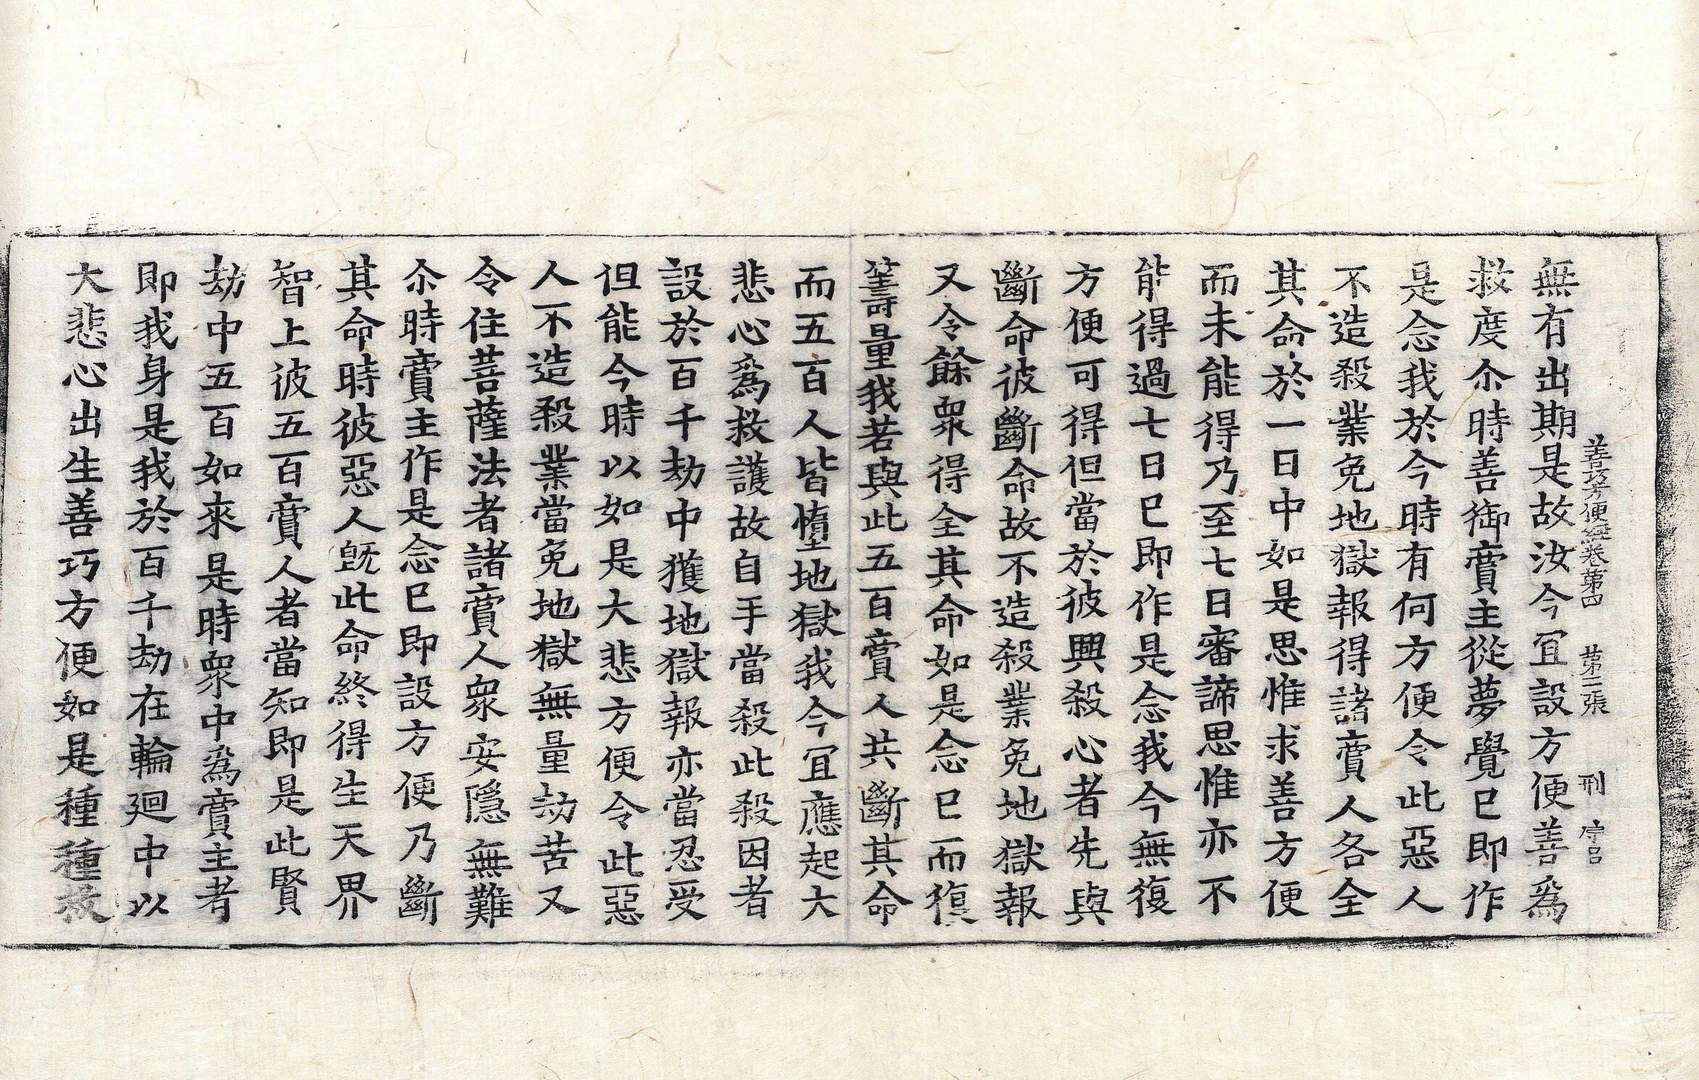 善巧方便經卷第四　第二張　刑
無有出期是故汝今宜設方便善爲
救度尒時善御賣主從夢覺已即作
是念我於今時有何方便令此惡人
不造殺業免地獄報得諸賣人各全
其命於一日中如是思惟求善方便
而未能得乃至七日審諦思惟亦不
能得過七日已即作是念我今無復
方便可得但當於彼興殺心者先與
斷命彼斷命故不造殺業免地獄報
又令餘衆得全其命如是念已而復
籌量我若與此五百賣人共斷其命
而五百人皆墮地獄我今宜應起大
悲心爲救護故自手當殺此殺因者
設於百千劫中獲地獄報亦當忍受
但能今時以如是大悲方便令此惡
人不造殺業當免地獄無量劫苦又
令住菩薩法者諸賣人衆安隱無難
尒時賣主作是念已即設方便乃斷
其命時彼惡人旣此命終得生天界
智上彼五百賣人者當知即是此賢
劫中五百如來是時衆中爲賣主者
即我身是我於百千劫在輪迴中以
大悲心出生善巧方便如是種種救